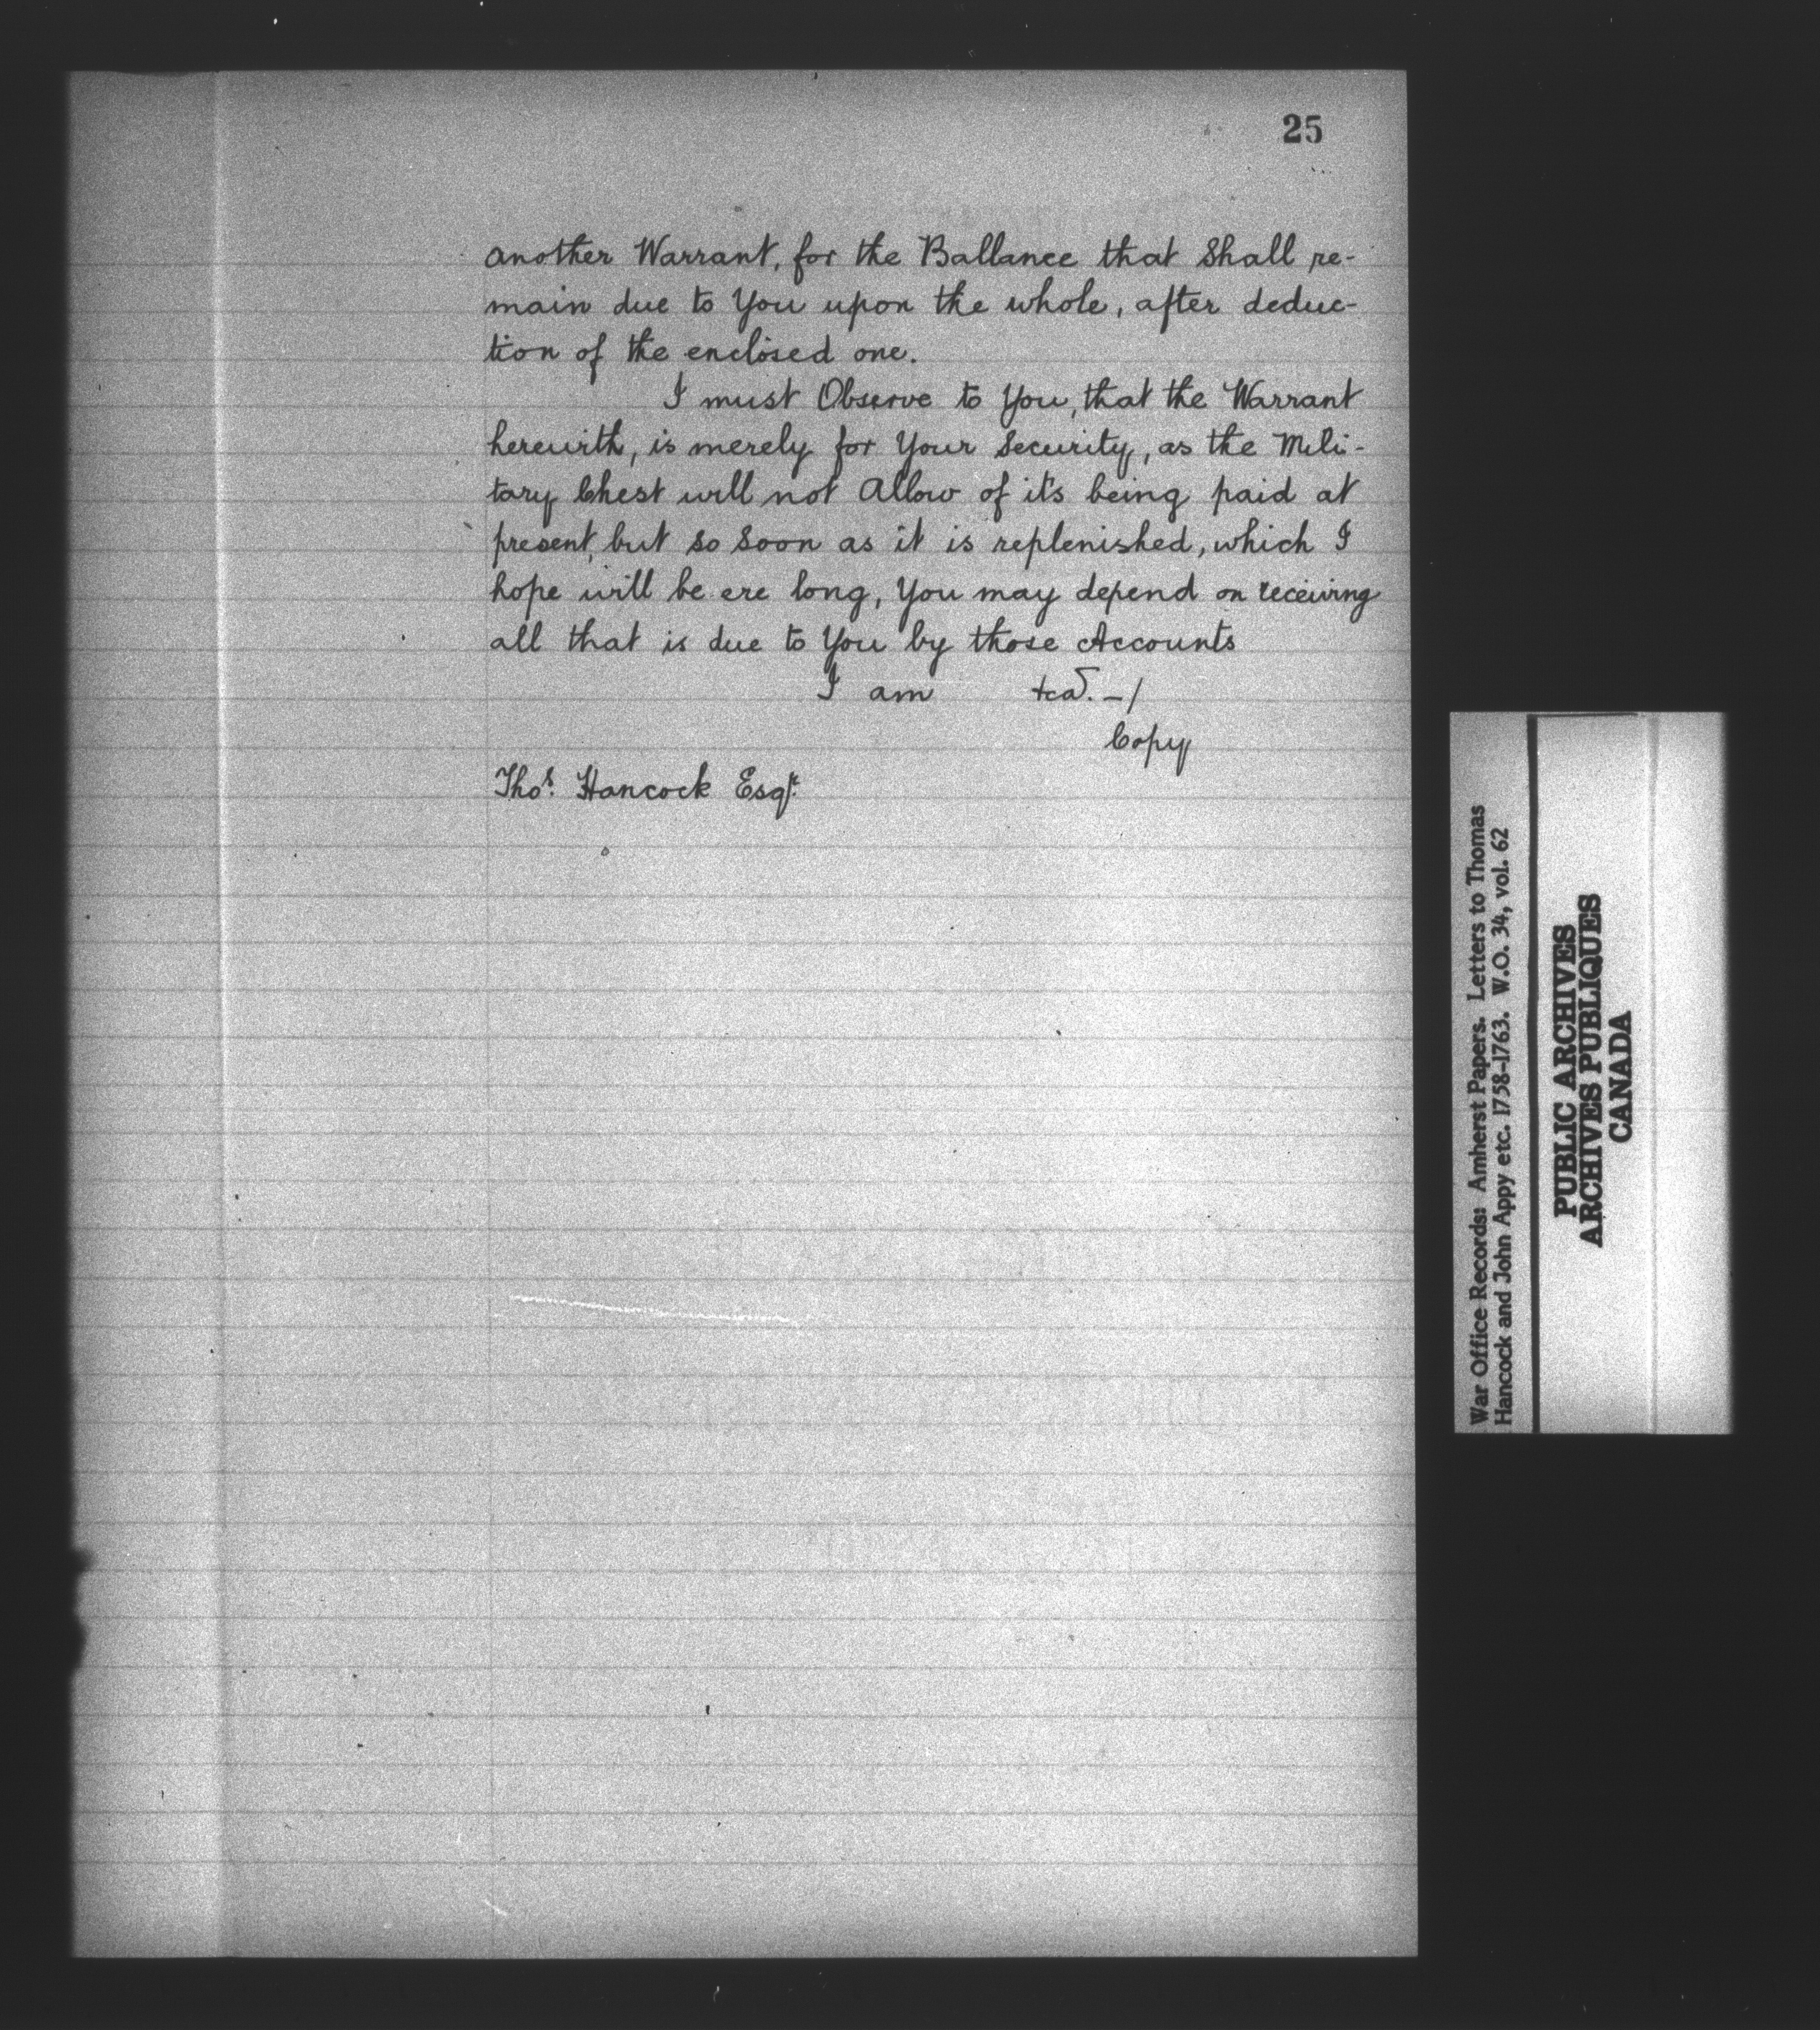 25
another Warrant, for the Ballance that Shall re-
main due to You upon the whole, after deduc-
tion of the enclosed one.
I must Observe to You, that the Warrant
herewith, is merely for Your Security, as the Mili-
tary Chest will not Allow of it's being paid at
present, but so Soon as it is replenished, which I
hope will be ere long, You may depend on receiving
all that is due to You by those Accounts
I am &ca. -/
Copy
Thos. Hancock Esqr.
War Office Records: Amherst Papers. Letters to Thomas
Hancock and John Appy etc. 1758-1763. W.O. 34, vol. 62
PUBLIC ARCHIVES
ARCHIVES PUBLIQUES
CANADA